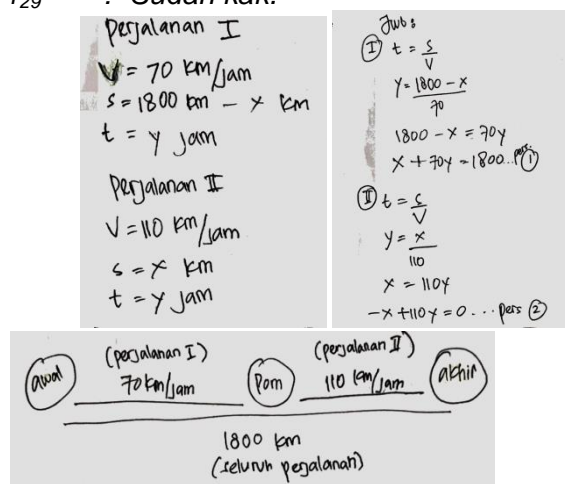 : Sudah kak.
Perjalanan I
V = 70 km/jam
s = 1800 km - x km
t = y jam
Perjalanan II
V = 110 km/jam
s = x km
t = y jam
Jwb :
I t = s/V
y = 1800 - x / 70
1800 - x = 70y
x + 70y = 1800...pers. 1
II t = s/V
y = x / 110
x = 110y
-x + 110y = 0 ... pers 2
awal (perjalanan I) 70 km/jam Pom (perjalanan II) 110 km/jam akhir
1800 km
(seluruh perjalanan)